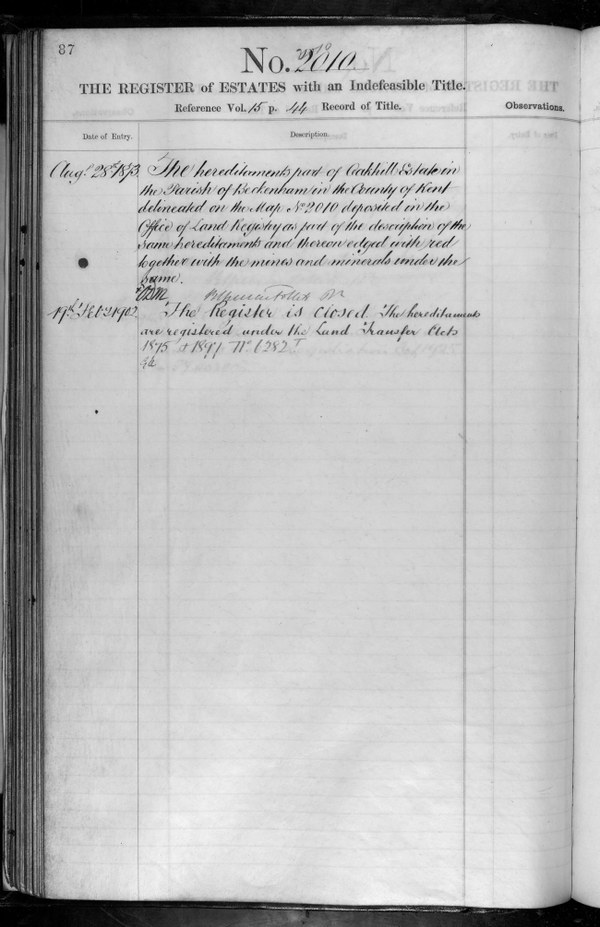 87
No. 2010
THE REGISTER of ESTATES with an Indefeasible Title.
Reference Vol. 15 p. 44 Record of Title.
Observations.
Date of Entry.
Description.
Augt. 28th 1873. The hereditaments part of Oakhill Estate in
the Parish of Beckenham in the County of Kent
delineated on the Map No 2010 deposited in the
Office of Land Registry as part of the description of the
same hereditaments and thereon edged with red
together with the mines and minerals under the
same.
19th Feb. 1902. The Register is closed. The hereditaments
are registered under the Land Transfer Acts
1875 & 1897 No. 6282